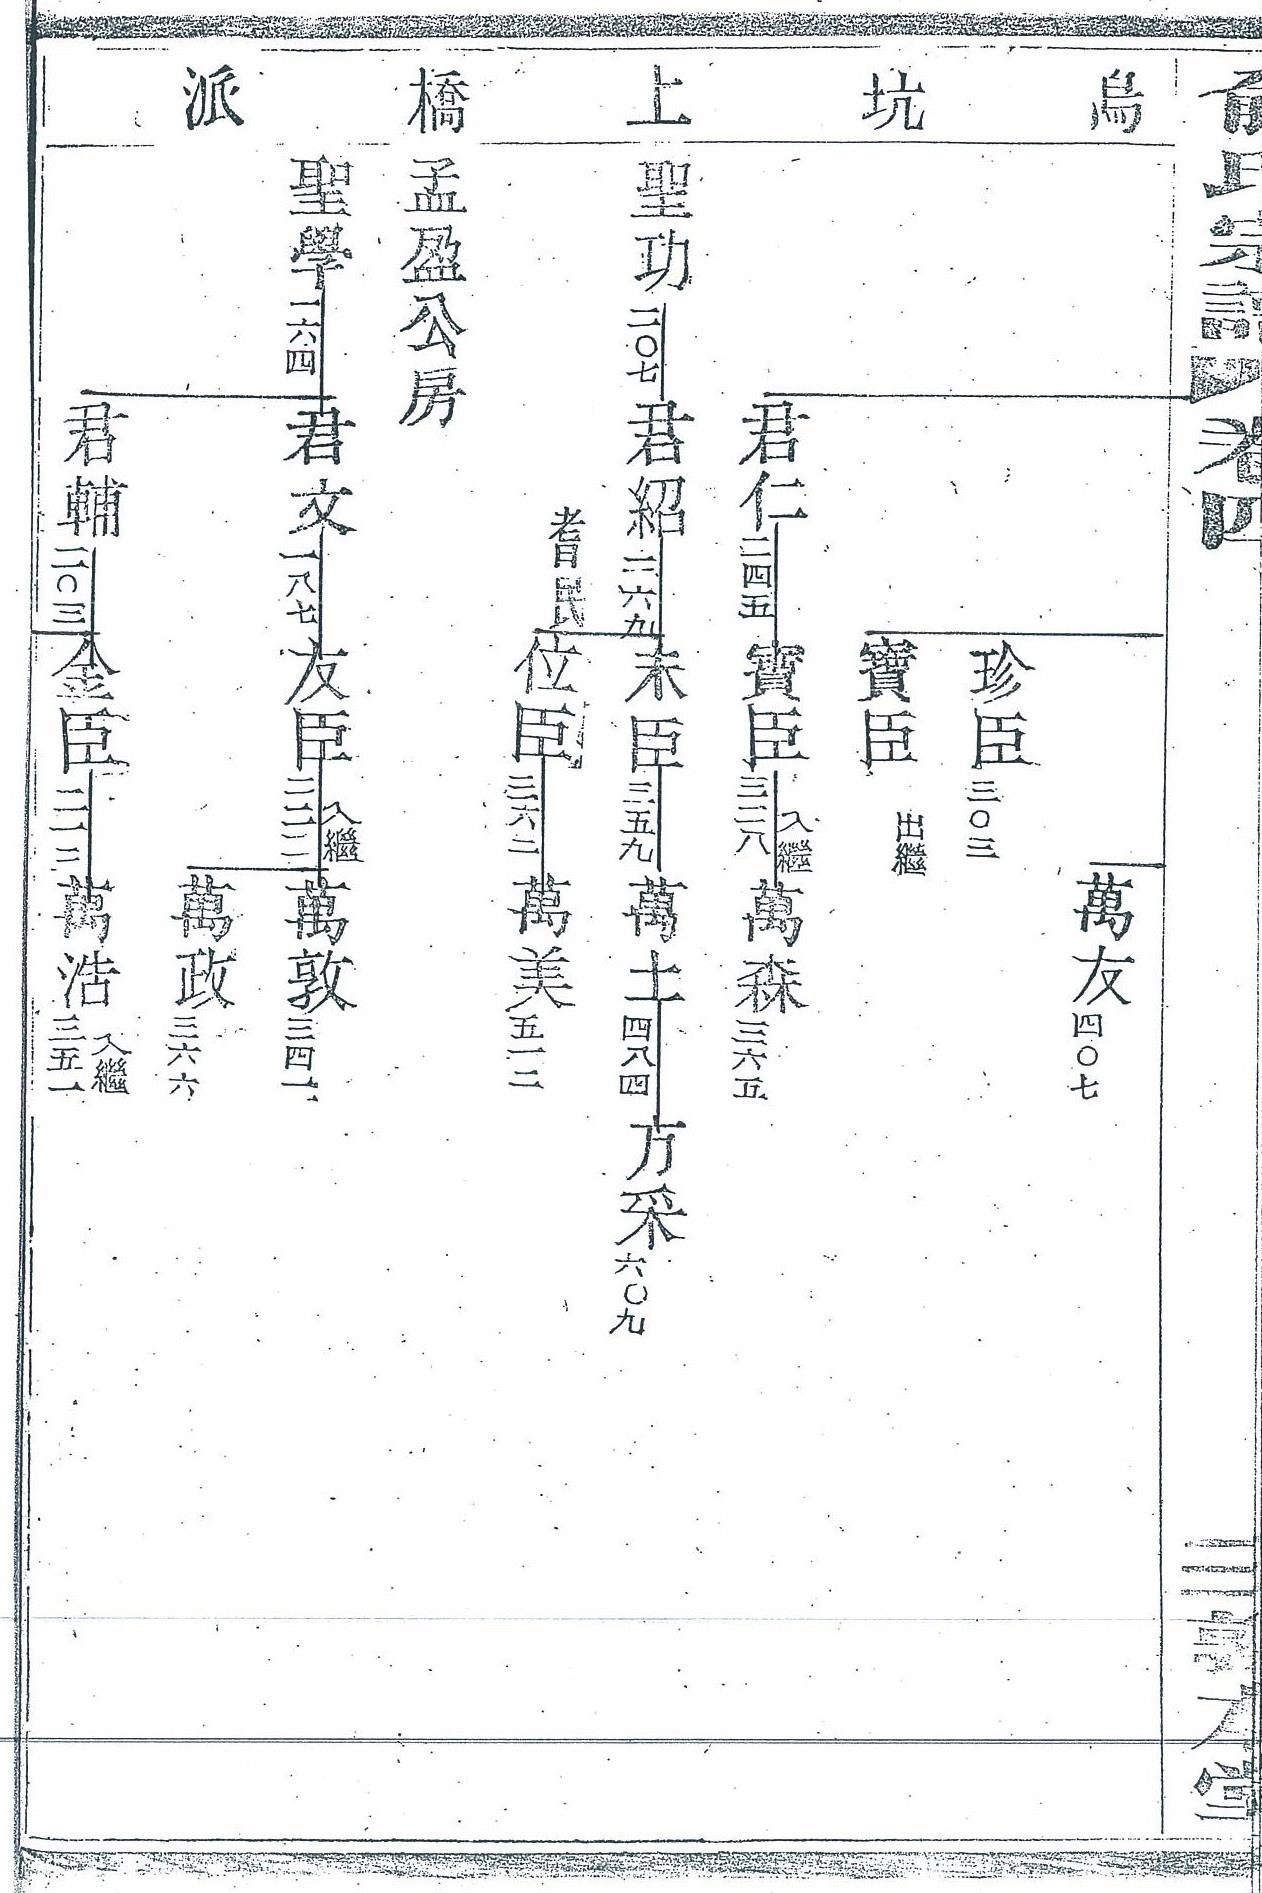 俞氏宗譜 卷四
烏坑上橋派
萬友 四〇七
珍臣 三〇三
寶臣 出繼
君仁 二四五
寶臣 三二八 入繼
萬森 三六五
聖功 二〇七
君紹 二六九
未臣 三五九
萬士 四八四
方采 六〇九
耆民
位臣 三六二
萬美 五一二
孟盈公房
聖學 一六四
君文 一八七
友臣 入繼
萬敦
萬政 三六六
君輔 二〇三
金臣
萬浩 三五一 入繼